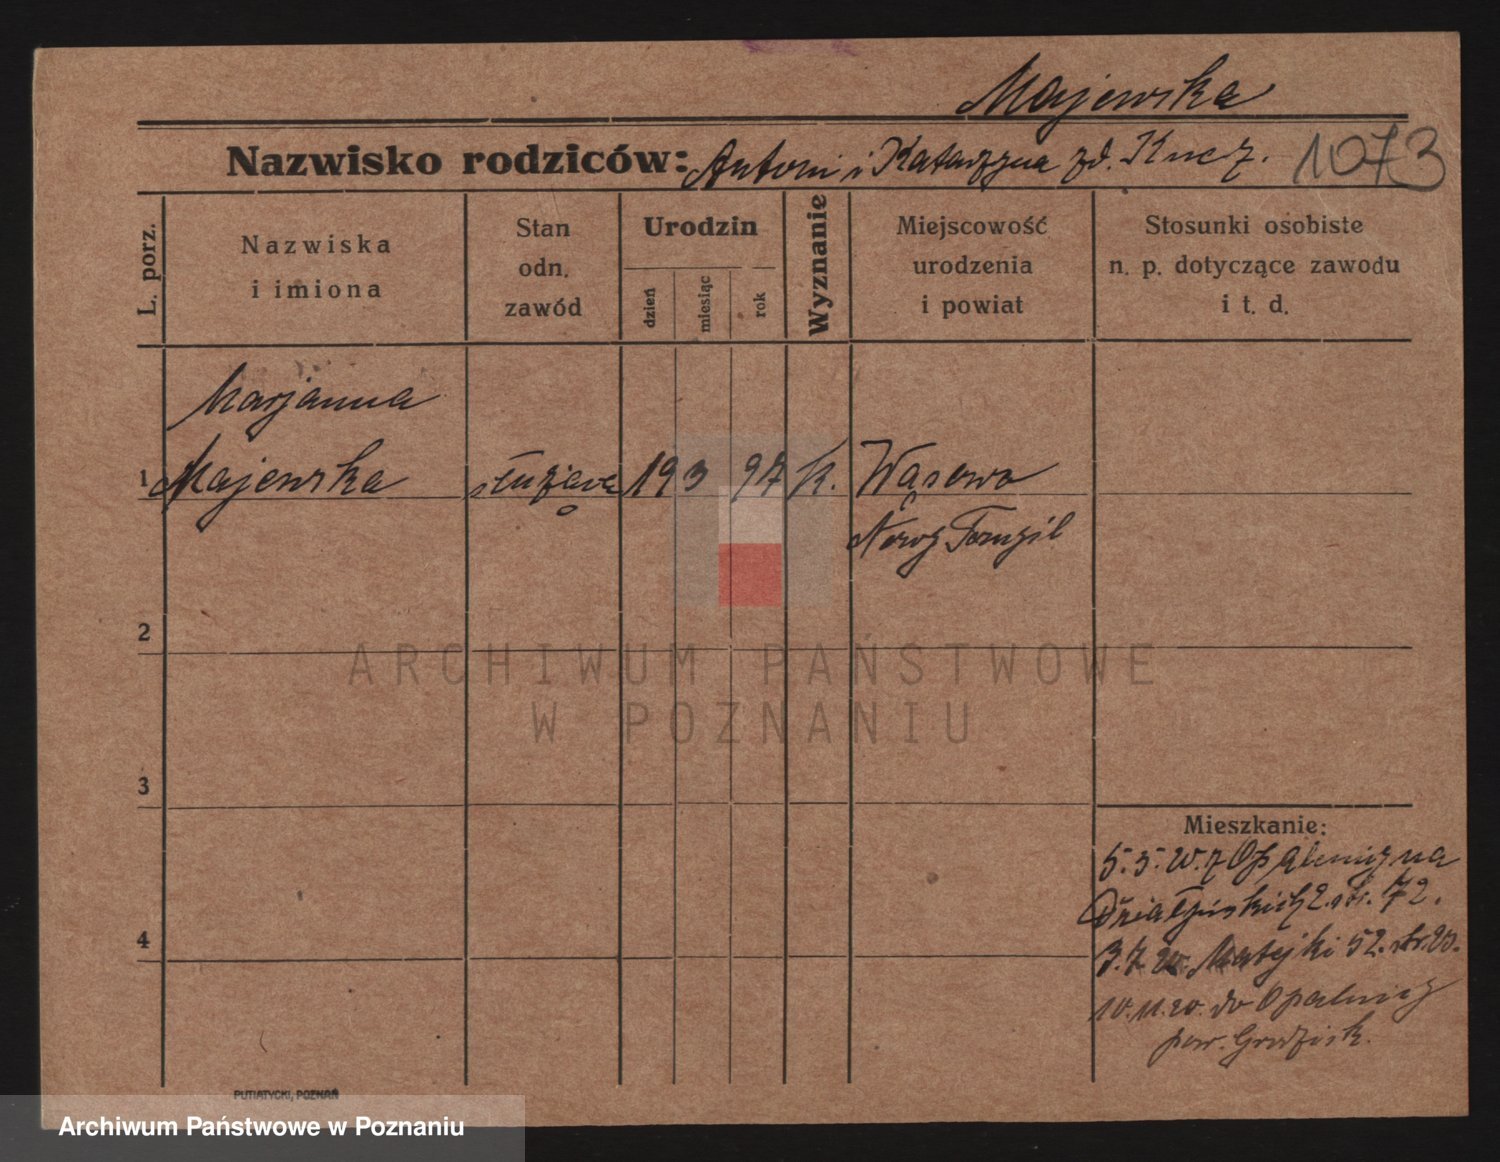 Majewska
Nazwisko rodziców: Antoni i Katarzyna zd. Kucz. 1073
L. porz.
Nazwiska
i imiona
Stan
odn.
zawód
Urodzin
dzień
miesiąc
rok
Wyznanie
Miejscowość
urodzenia
i powiat
Stosunki osobiste
n. p. dotyczące zawodu
i t. d.
Marjanna
1 Majewska służąca 19 3 97 k. Wąsowo
Nowy Tomyśl
2
ARCHIWUM PAŃSTWOWE
W POZNANIU
3
4
Mieszkanie:
5.5. z Opalenicy na
Działyńskich 2. str. 72.
3.7. 20. Matejki 52. str. 20.
10.11.20. do Opalenicy
pow. Grodzisk.
PUTIATYCKI, POZNAŃ
Archiwum Państwowe w Poznaniu